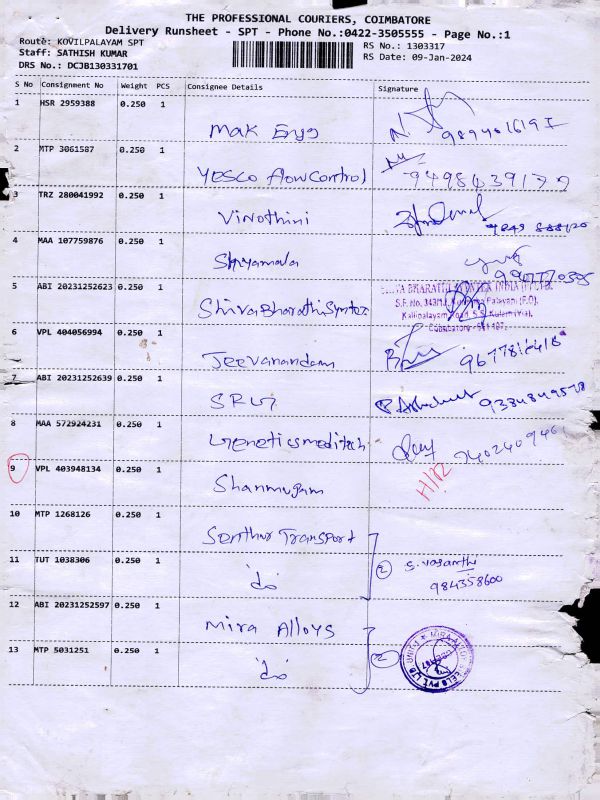 THE PROFESSIONAL COURIERS, COIMBATORE
Delivery Runsheet - SPT - Phone No.:0422-3505555 - Page No.:1
Route: KOVILPALAYAM SPT
Staff: SATHISH KUMAR
DRS No.: DCJB130331701
RS No.: 1303317
RS Date: 09-Jan-2024
S No Consignment No Weight PCS Consignee Details Signature
1 HSR 2959388 0.250 1
Mak Engg
2 MTP 3061587 0.250 1
Yesco flowcontrol
3 TRZ 280041992 0.250 1
Vinothini
4 MAA 107759876 0.250 1
Shyamala
5 ABI 20231252623 0.250 1
ShivaBharathiSyntex
SHIVA BHARATHI SYNTEX INDIA (P) LTD.
Coimbatore - 641 107
6 VPL 404056994 0.250 1
Jeevanandam
7 ABI 20231252639 0.250 1
SRVJ
8 MAA 572924231 0.250 1
Geneticsmeditech
9 VPL 403948134 0.250 1
Shanmugam
10 MTP 1268126 0.250 1
Senthur Transport
11 TUT 1038306 0.250 1
do
2 S. Vasanthi
984358600
12 ABI 20231252597 0.250 1
Mira Alloys
13 MTP 5031251 0.250 1
do
2